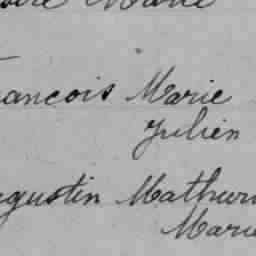 Marie
ancois Marie
Julien
gustin Mathuri
Marie